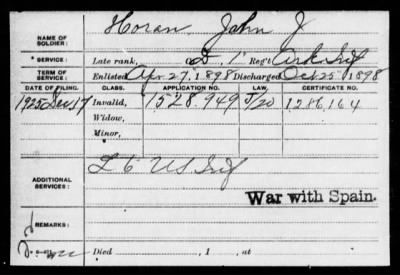 NAME OF SOLDIER: Horan, John J
SERVICE: Late rank, D, 1 Reg't Ark Inf
TERM OF SERVICE: Enlisted Apr. 27, 1898 Discharged Oct 25 1898
DATE OF FILING. CLASS. APPLICATION NO. LAW. CERTIFICATE NO.
1925 Dec 17 Invalid, 1528.949 J/20 1286,164
Widow,
Minor,
ADDITIONAL SERVICES: L 6 US Inf
War with Spain.
REMARKS:
Died , 1 , at